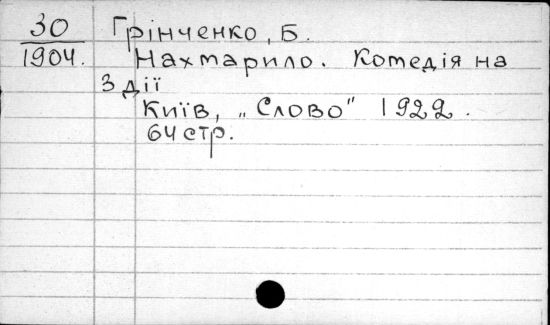 30
1904.
Грінченко, Б.
Нахмарило. Комедія на
3 дії
Київ, „Слово" 1922.
64 стр.